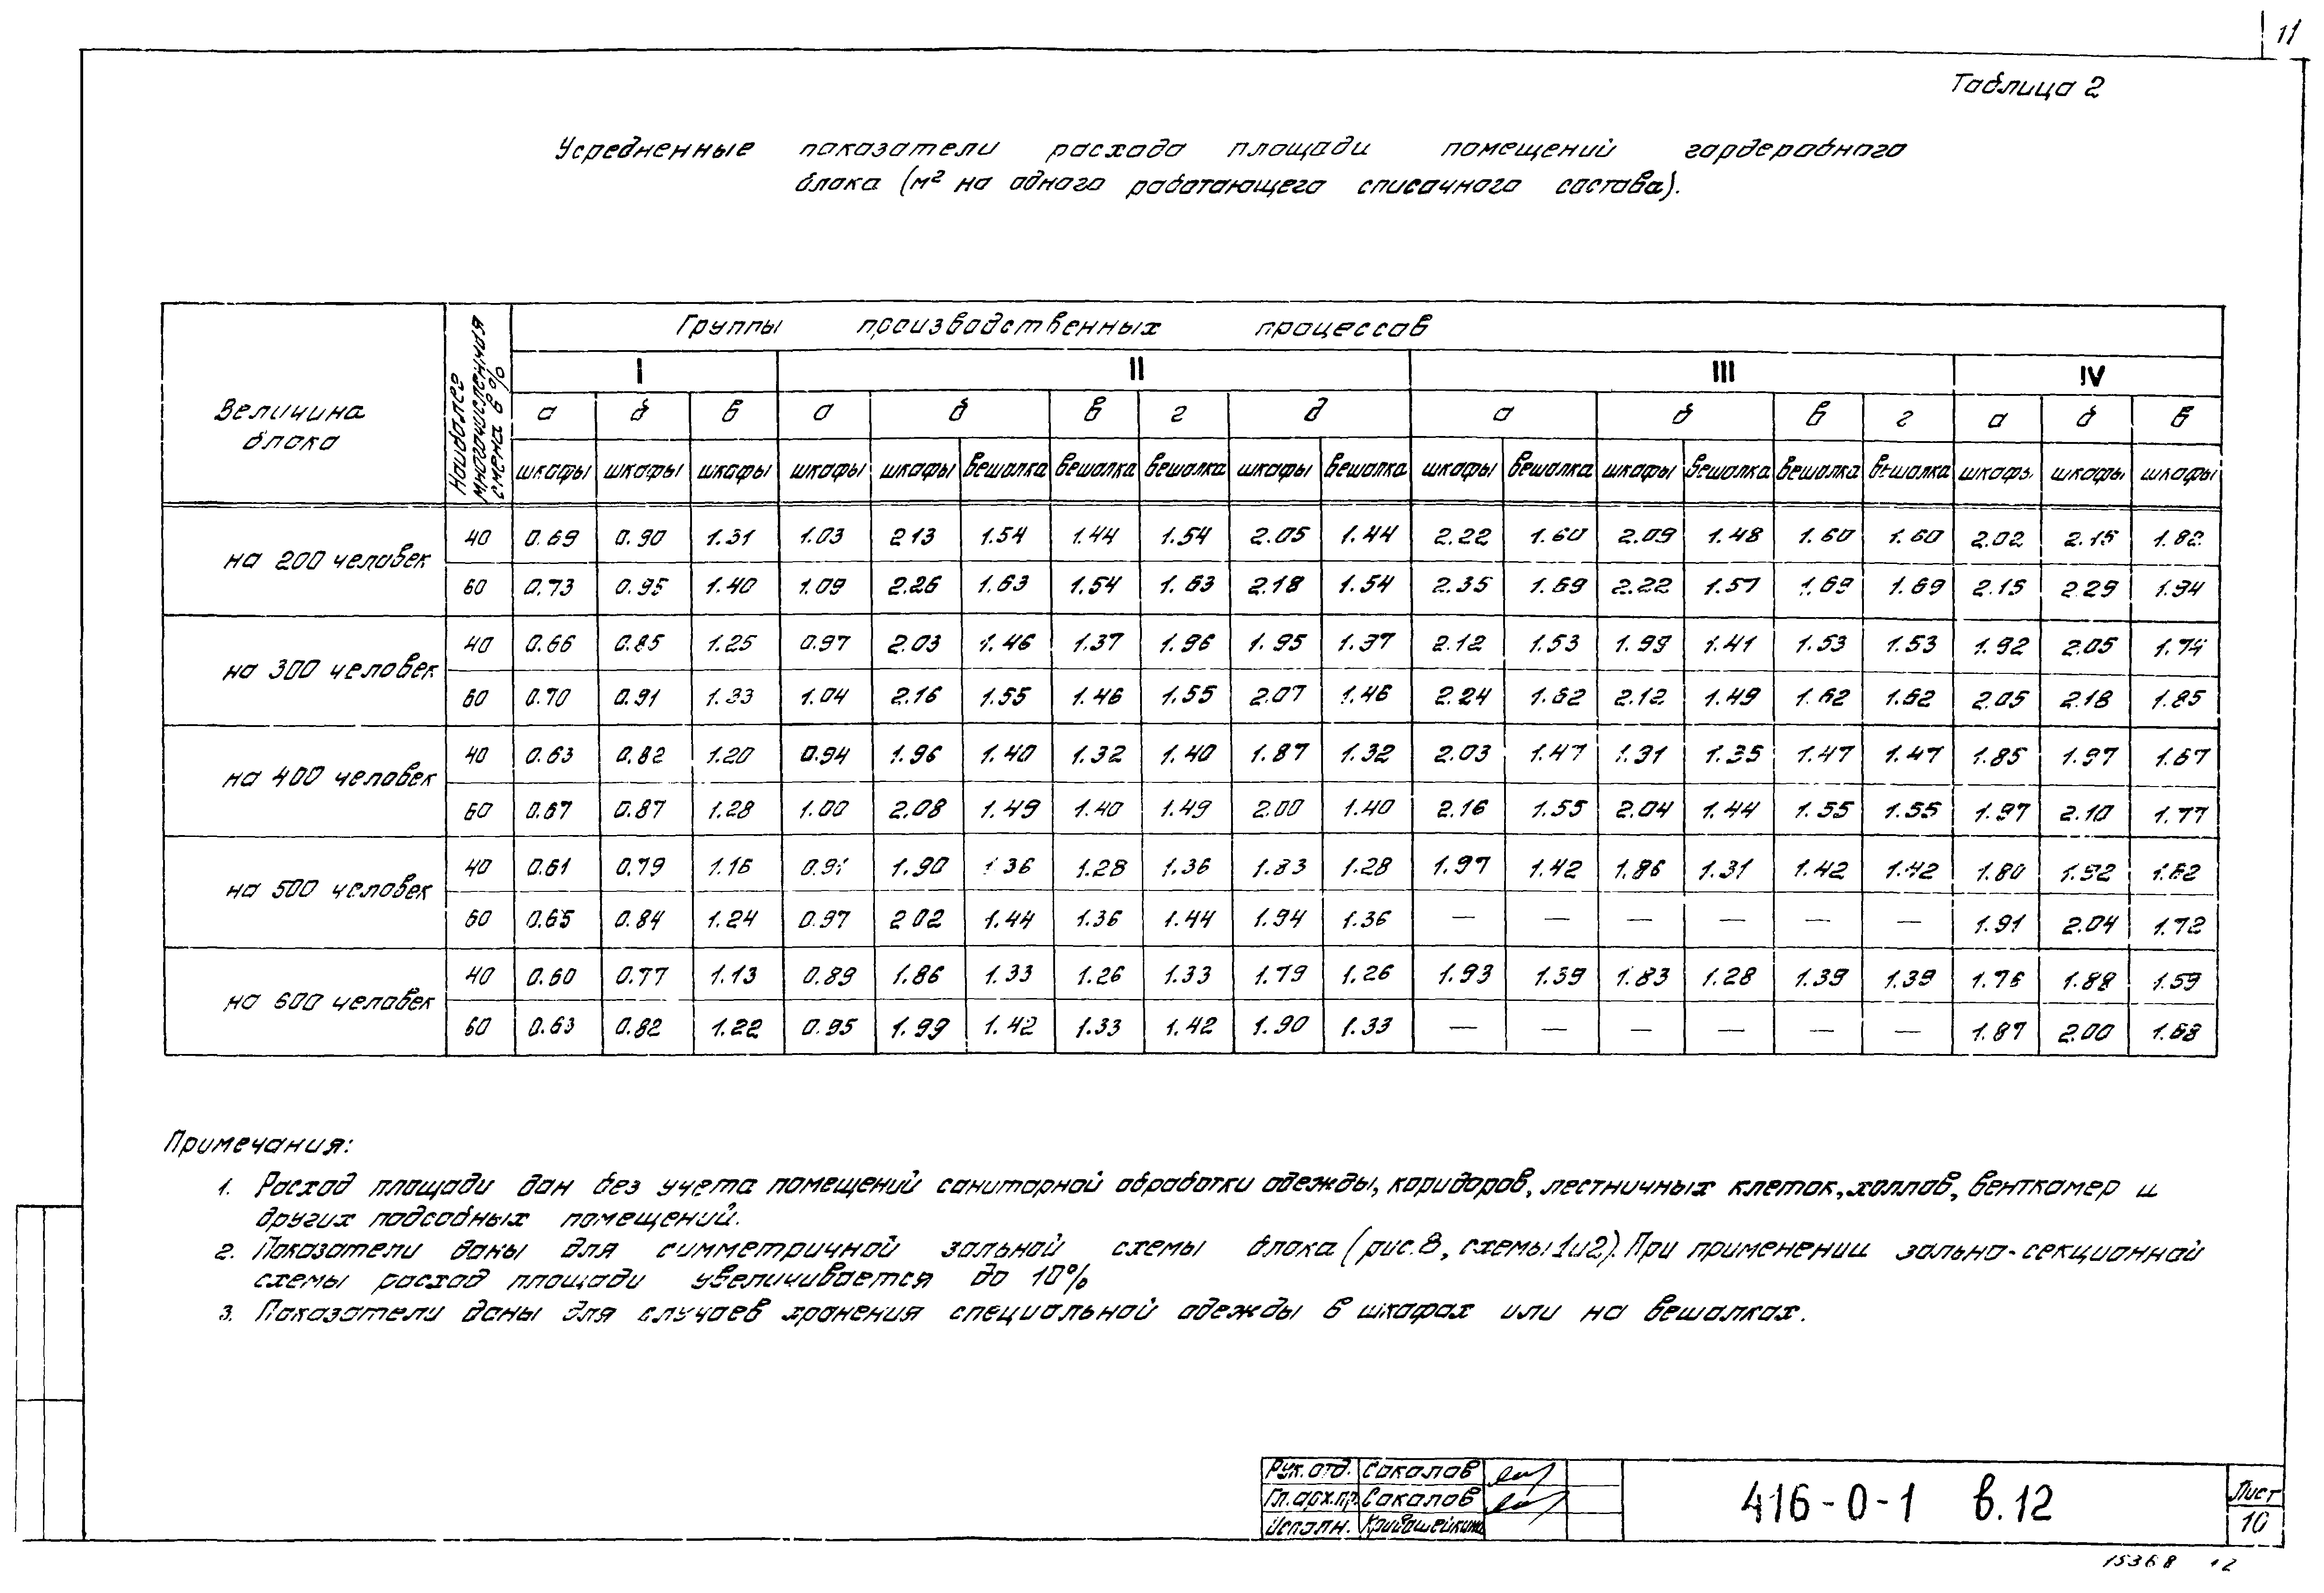 11
Таблица 2
Усредненные показатели расхода площади помещений гардеробного
блока (м² на одного работающего списочного состава).
Величина блока
Наиболее многочисленная смена в %
Группы производственных процессов
I II III IV
а б в а б в г д а б в г а б в
шкафы шкафы шкафы шкафы шкафы вешалка вешалка вешалка шкафы вешалка шкафы вешалка шкафы вешалка вешалка вешалка шкафы шкафы шкафы
на 200 человек
40 0.69 0.90 1.31 1.03 2.13 1.54 1.44 1.54 2.05 1.44 2.22 1.60 2.09 1.48 1.60 1.60 2.02 2.15 1.82
60 0.73 0.95 1.40 1.09 2.26 1.63 1.54 1.63 2.18 1.54 2.35 1.69 2.22 1.57 1.69 1.69 2.15 2.29 1.94
на 300 человек
40 0.66 0.85 1.25 0.97 2.03 1.46 1.37 1.96 1.95 1.37 2.12 1.53 1.99 1.41 1.53 1.53 1.92 2.05 1.74
60 0.70 0.91 1.33 1.04 2.16 1.55 1.46 1.55 2.07 1.46 2.24 1.62 2.12 1.49 1.62 1.62 2.05 2.18 1.85
на 400 человек
40 0.63 0.82 1.20 0.94 1.96 1.40 1.32 1.40 1.87 1.32 2.03 1.47 1.91 1.35 1.47 1.47 1.85 1.97 1.67
60 0.67 0.87 1.28 1.00 2.08 1.49 1.40 1.49 2.00 1.40 2.16 1.55 2.04 1.44 1.55 1.55 1.97 2.10 1.77
на 500 человек
40 0.61 0.79 1.16 0.91 1.90 1.36 1.28 1.36 1.83 1.28 1.97 1.42 1.86 1.31 1.42 1.42 1.80 1.92 1.62
60 0.65 0.84 1.24 0.97 2.02 1.44 1.36 1.44 1.94 1.36 — — — — — — 1.91 2.04 1.72
на 600 человек
40 0.60 0.77 1.13 0.89 1.86 1.33 1.26 1.33 1.79 1.26 1.93 1.39 1.83 1.28 1.39 1.39 1.76 1.88 1.59
60 0.63 0.82 1.22 0.95 1.99 1.42 1.33 1.42 1.90 1.33 — — — — — — 1.87 2.00 1.68
Примечания:
1. Расход площади дан без учета помещений санитарной обработки одежды, коридоров, лестничных клеток, холлов, венткамер и
других подсобных помещений.
2. Показатели даны для симметричной зальной схемы блока (рис. 8, схемы 1и2). При применении зально-секционной
схемы расход площади увеличивается до 10%
3. Показатели даны для случаев хранения специальной одежды в шкафах или на вешалках.
Рук. отд. Соколов
Гл. арх. пр. Соколов
Исполн. Кривошейкина
416-0-1 в.12
Лист
10
15368 12